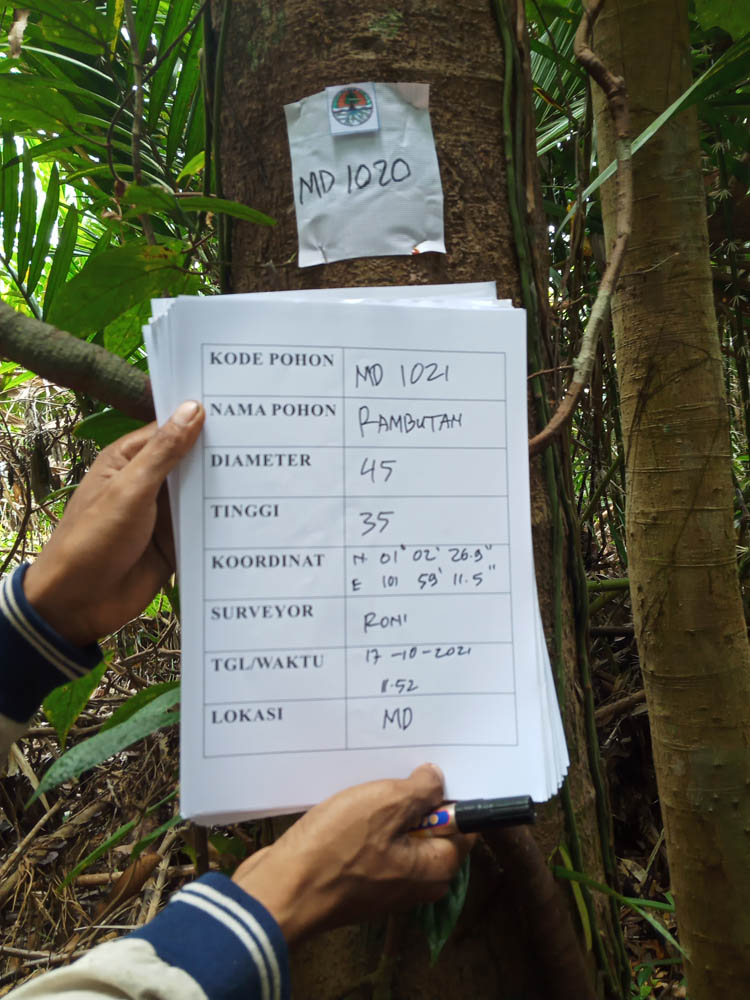 MD 1020
KODE POHON MD 1021
NAMA POHON RAMBUTAN
DIAMETER 45
TINGGI 35
KOORDINAT N 01° 02' 26.9"
E 101 59' 11.5"
SURVEYOR RONI
TGL/WAKTU 17-10-2021
11.52
LOKASI MD